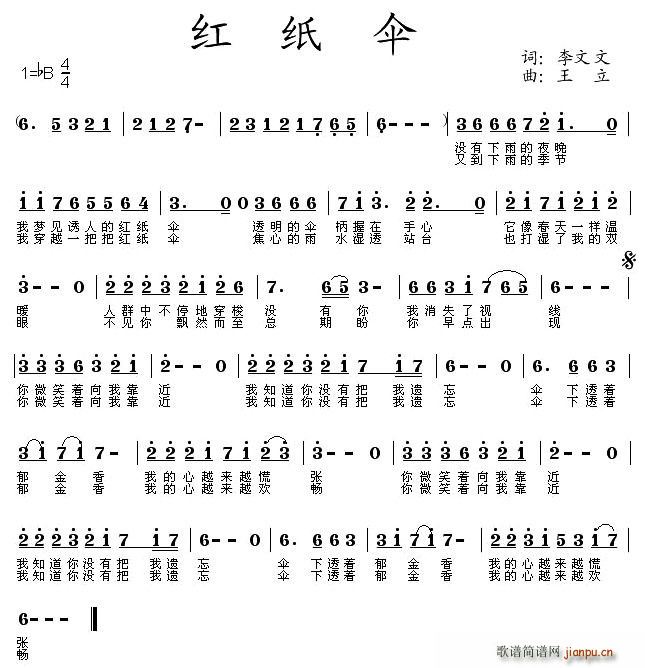 红 纸 伞
1=♭B 4/4
词：李文文
曲：王 立
(6. 5 3 2 1 | 2 1 2 7 - | 2 3 1 2 1 7 6 5 | 6 - - - ) | 3 6 6 6 7 2 1. 0 |
没有下雨的夜晚
又到下雨的季节
1 1 7 6 5 5 6 4 | 3. 0 0 3 6 6 6 | 7 6 3 2 2. 0 | 0 2 1 2 3 2 1 7 |
我梦见诱人的红纸 伞 透明的伞 柄握在 手心 它像春天一样温
我穿越一把把红纸 伞 焦心的雨 水湿透 站台 也打湿了我的双
3 - - 0 | 2 2 2 3 2 1 2 2 | 7. 0 0 6 5 | 6 6 3 1 7 6 5 | 6 - - 0 |
暖 人群中不停地穿梭 没 有你 我消失了视 线
眼 不见你 飘然而至 总 期盼 你早点出 现
3 3 3 3 2 2 1 | 2 - - 0 | 2 2 2 3 2 2 1 7 1 1 7 | 6 - - 0 | 6. 6 3 3 |
你微笑着向我靠 近 我知道你没有把 我遗 忘 伞 下透着
你微笑着向我靠 近 我知道你没有把 我遗 忘 伞 下透着
3 1 7 1 7 - | 2 2 2 2 2 1 2 3 | 3 - - 0 | 3 3 3 3 2 2 1 | 2 - - 0 |
郁 金 香 我的心越来越慌 张 你微笑着向我靠 近
郁 金 香 我的心越来越欢 畅 你微笑着向我靠 近
2 2 2 3 2 2 1 7 1 7 | 6 - - 0 | 6. 6 3 3 | 3 1 7 1 7 | 2 2 3 1 5 3 1 7 |
我知道你没有把 我遗 忘 伞 下透着 郁 金 香 我的心越来越慌
我知道你没有把 我遗 忘 伞 下透着 郁 金 香 我的心越来越欢
6 - - - ‖
张
畅
歌谱简谱网
jianpu.cn